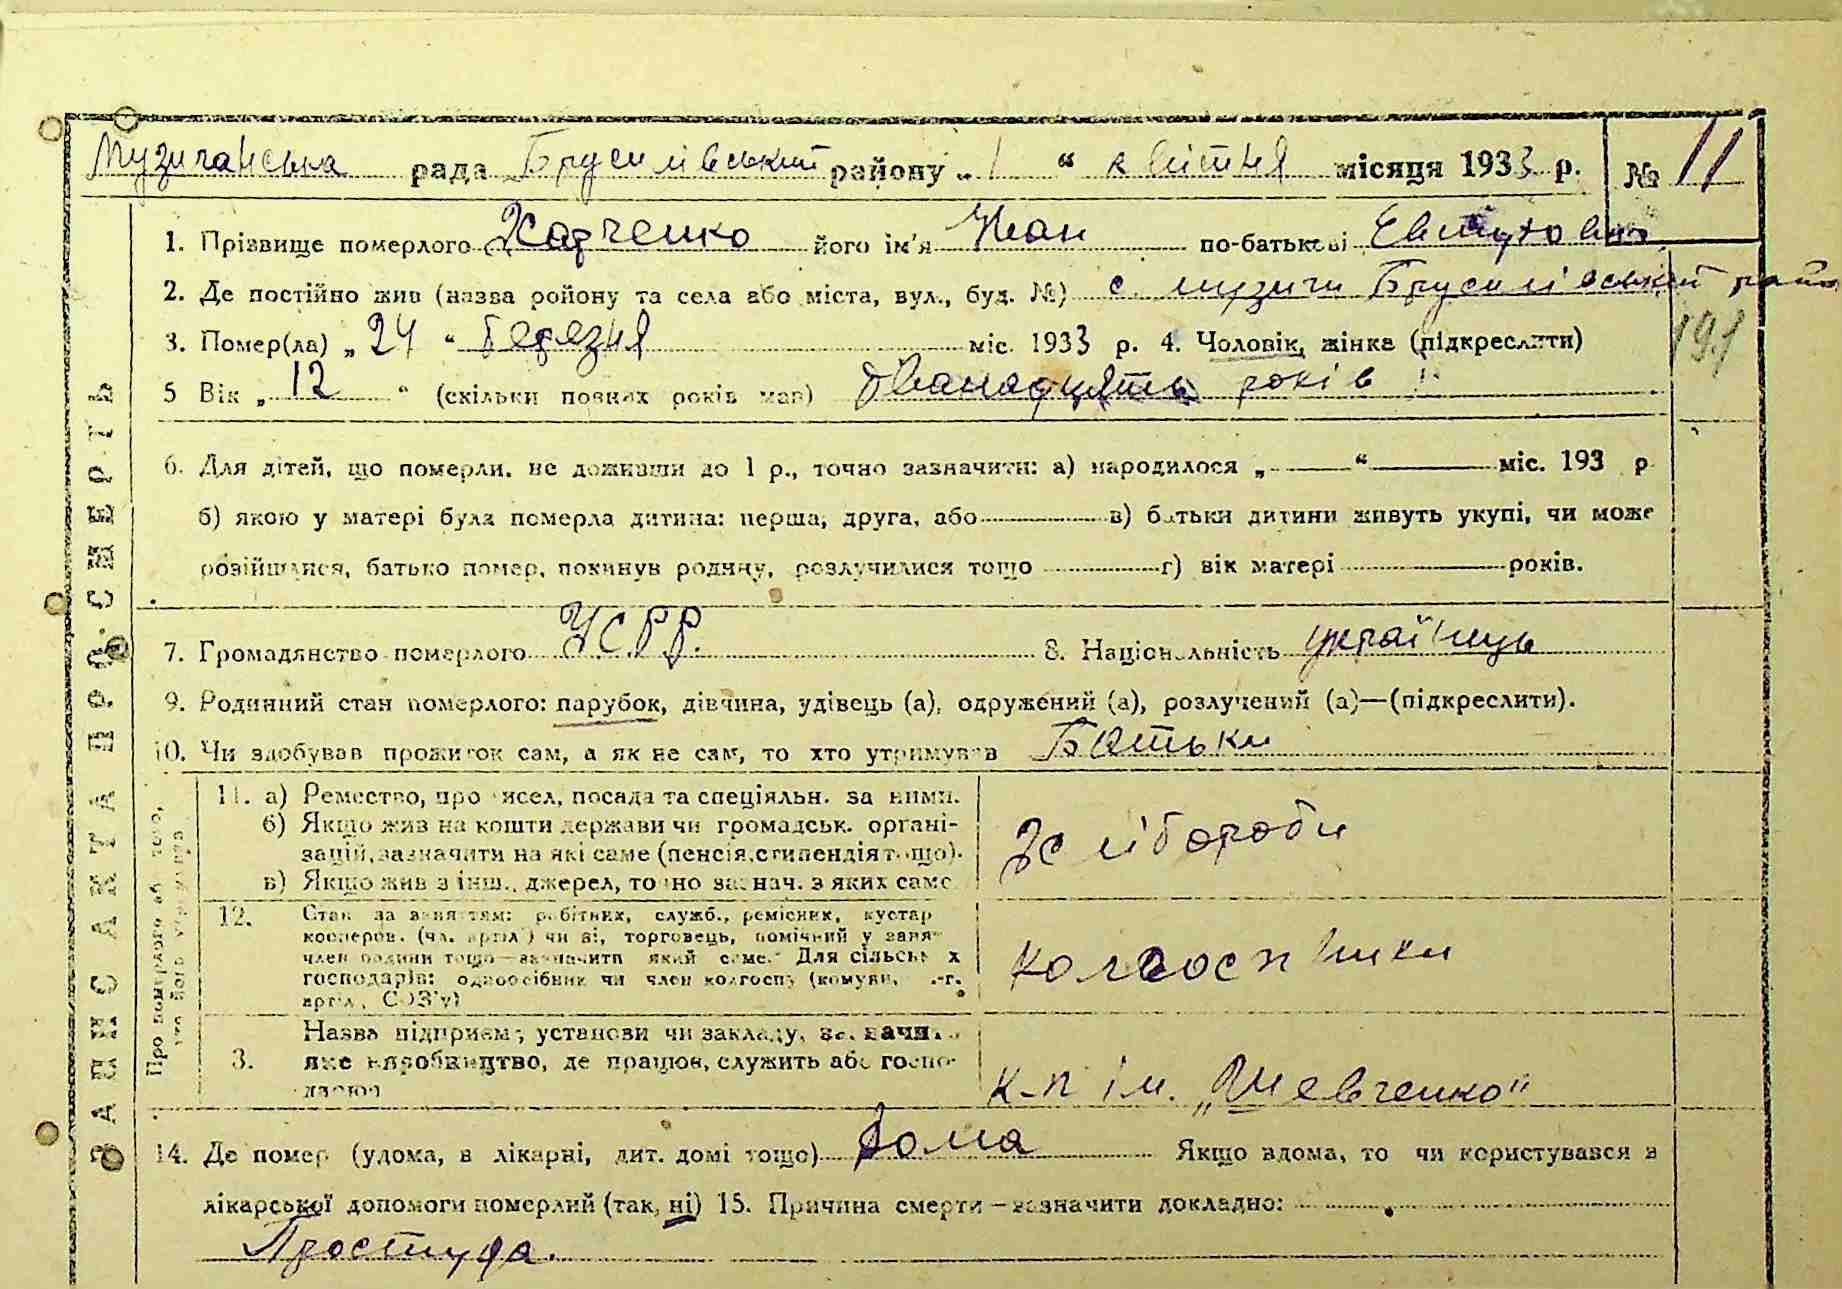 Музичанська рада Брусилівський району „ 1 “ квітня місяця 1933 р. № 11
1. Прізвище померлого Харченко його ім'я Іван по-батькові
2. Де постійно жив (назва ройону та села або міста, вул., буд. №) с. музичи Брусилівський район
3. Помер(ла) „ 24 “ березня міс. 1933 р. 4. Чоловік, жінка (підкреслити)
191
5 Вік „ 12 “ (скільки повних років мав) дванадцять років
6. Для дітей, що померли, не доживши до 1 р., точно зазначити: а) народилося „ — “ — міс. 193 р
б) якою у матері була померла дитина: перша, друга, або — в) батьки дитини живуть укупі, чи може
розійшлися, батько помер, покинув родину, розлучилися тощо г) вік матері років.
7. Громадянство померлого УСРР. 8. Національність українець
9. Родинний стан померлого: парубок, дівчина, удівець (а), одружений (а), розлучений (а)—(підкреслити).
10. Чи здобував прожиток сам, а як не сам, то хто утримував Батьки
11. а) Ремество, промисел, посада та спеціяльн. за ними.
б) Якщо жив на кошти держави чи громадськ. органі-
зацій, зазначити на які саме (пенсія, стипендія тощо).
в) Якщо жив з інш. джерел, точно зазнач. з яких саме
Хліборобы
12. Стан за заняттям: робітник, служб., ремісник, кустар
кооперов. (чл. артіл.) чи ні, торговець, помічний у занят
член родини тощо—зазначити який саме. Для сільськ х
господарів: одноосібник чи член колгоспу (комуни, с.-г.
артіл., СОЗ'у)
колгоспники
3. Назва підприєм., установи чи закладу, зазначит
яке виробництво, де працює, служить або госпо-
дарює
к-п ім. „Шевченко“
14. Де помер (удома, в лікарні, дит. домі тощо) дома Якщо вдома, то чи користувався з
лікарської допомоги померлий (так, ні) 15. Причина смерти — зазначити докладно:
Простуда.
ЗАПИС АКТА ПРО СМЕРТЬ
Про померлого або того,
хто його утримував